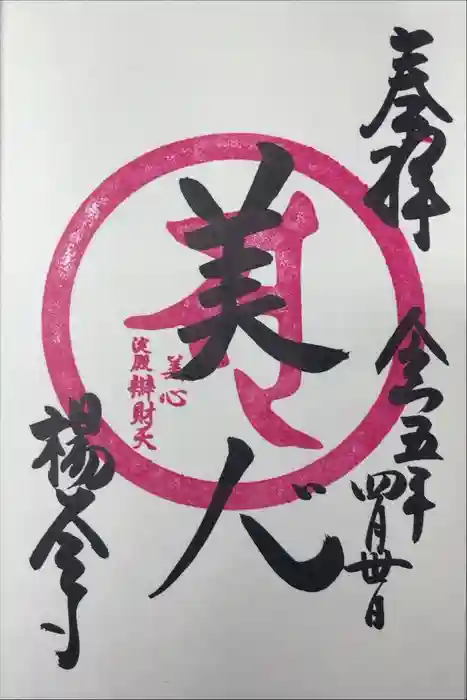 奉拝
令和五年
四月卅日
美心
美心
淀殿辯財天
楊谷寺